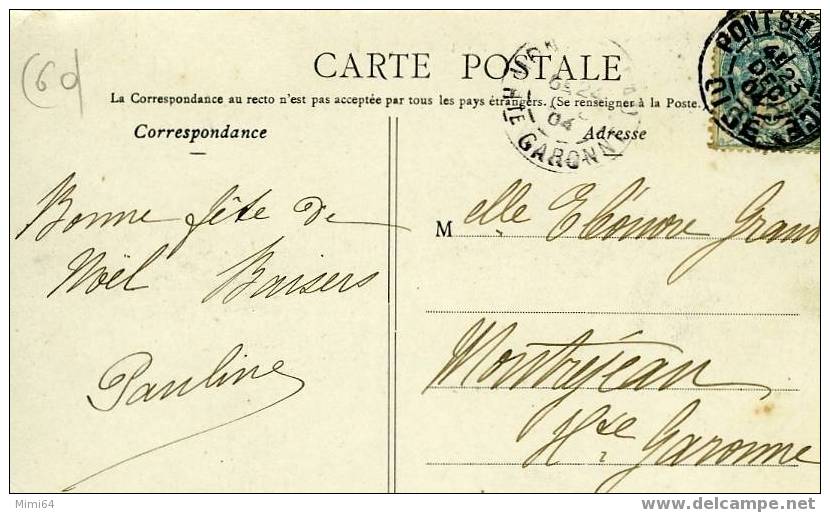 (60)
CARTE POSTALE
La Correspondance au recto n'est pas acceptée par tous les pays étrangers. (Se renseigner à la Poste.)
Correspondance
Adresse
PONT Ste M
OISE
23
DEC
04
Hte GARONNE
04
Bonne fête de
Noël Baisers
Pauline
Melle Eléonore Grand
Montréjeau
Hte Garonne
Mimi64
delcampe.net